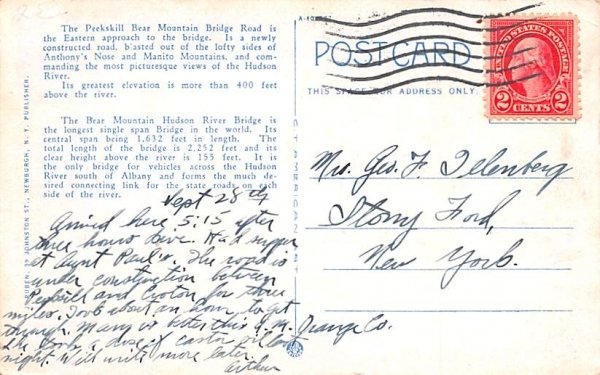 The Peekskill Bear Mountain Bridge Road is
the Eastern approach to the bridge. Is a newly
constructed road, blasted out of the lofty sides of
Anthony's Nose and Manito Mountains, and com-
manding the most picturesque views of the Hudson
River.
Its greatest elevation is more than 400 feet
above the river.
The Bear Mountain Hudson River Bridge is
the longest single span Bridge in the world. Its
central span being 1,632 feet in length. The
total length of the bridge is 2,252 feet and its
clear height above the river is 155 feet. It is
the only bridge for vehicles across the Hudson
River south of Albany and forms the much de-
sired connecting link for the state roads on each
side of the river.
JOHNSTON ST., NEWBURGH, N. Y. PUBLISHER.
Sept 28th
Arrived here 5:15 after
three hours drive. Had supper
at Aunt Paul's. The road is
under construction between
Peekskill and Croton for three
miles. Took about an hour to get
through. Mary is better this A.M.
She took a dose of castor oil last
night. Will write more later.
Arthur
POST CARD
THIS SPACE FOR ADDRESS ONLY.
UNITED STATES POSTAGE
2 CENTS 2
Mrs. Geo. F. Telenberg
Stony Ford,
New York.
Orange Co.